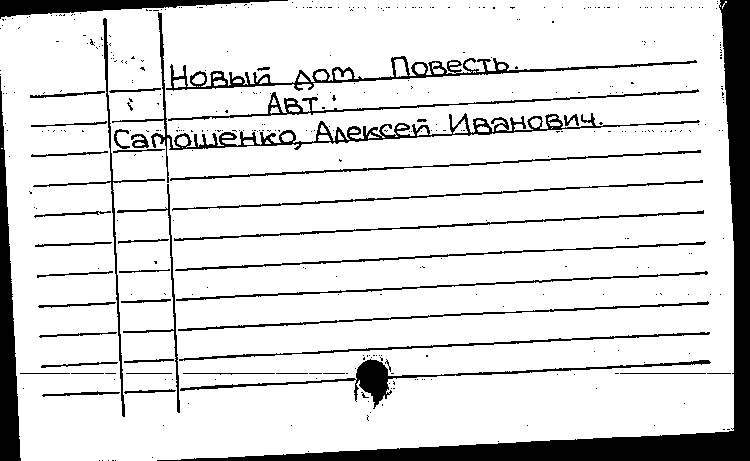 Новый дом. Повесть.
Авт.:
Самошенко, Алексей Иванович.